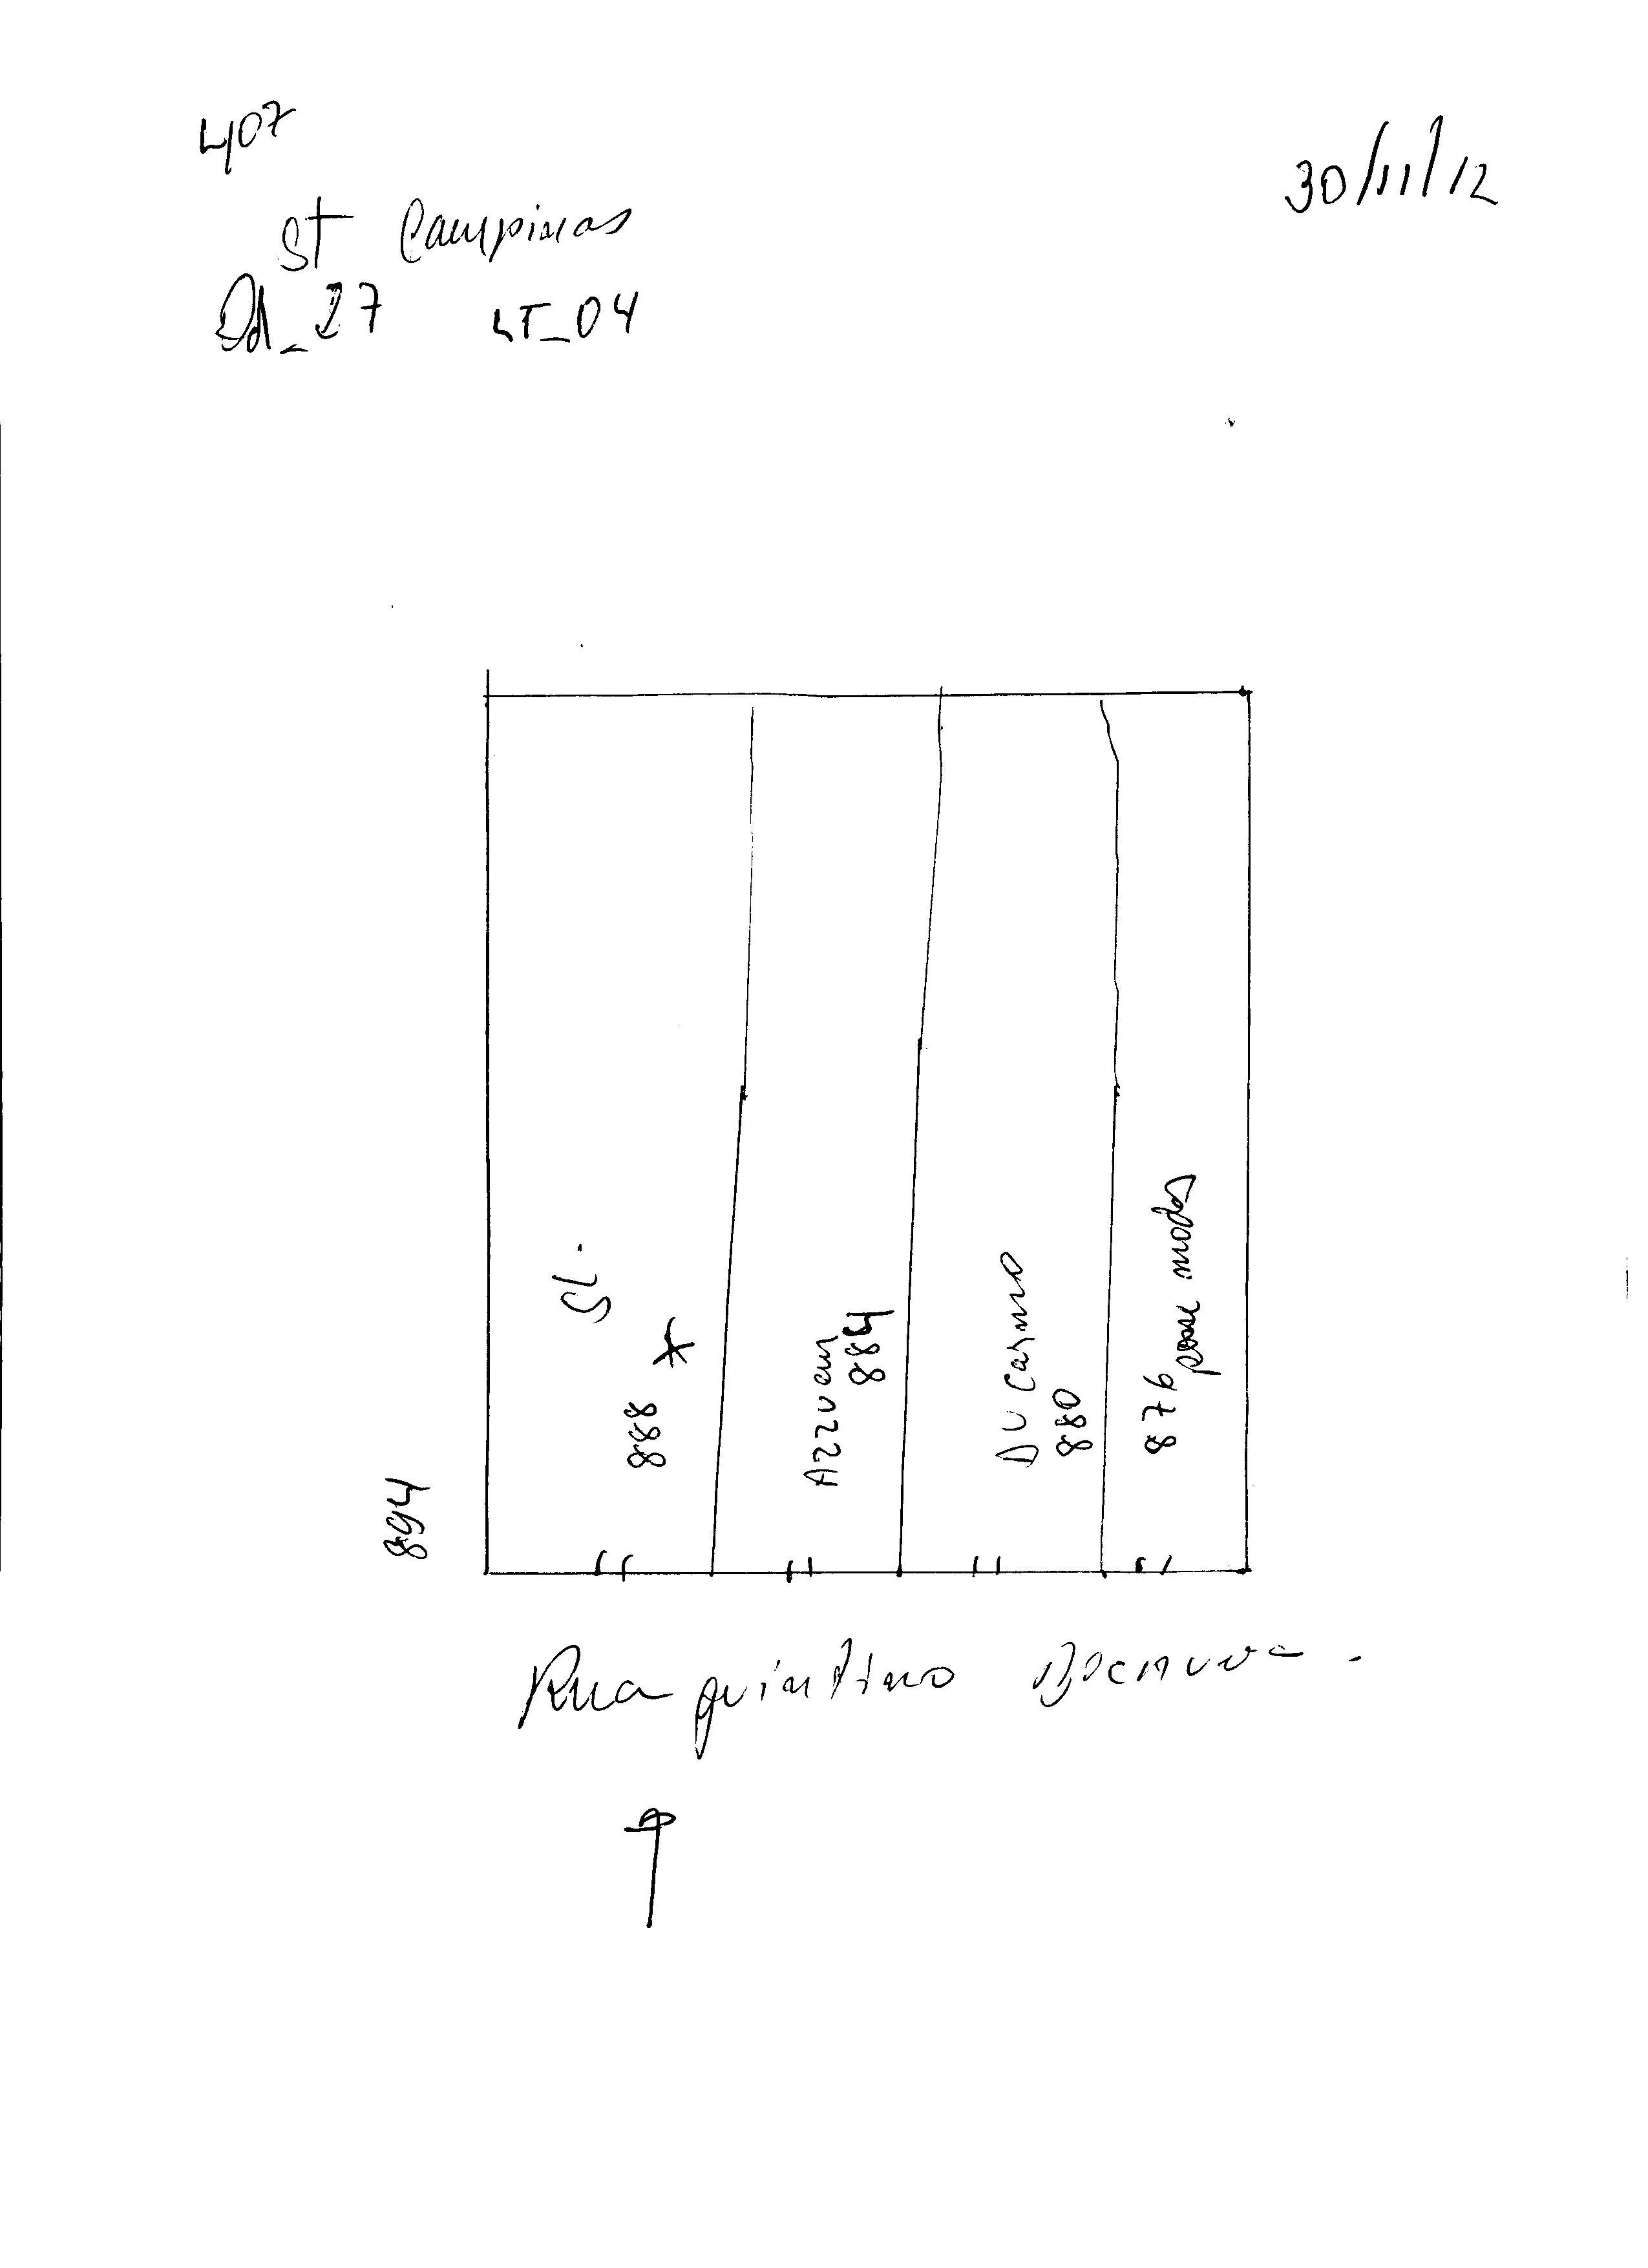 407
30/11/12
St Campinas
Qd_27 LT_04
894
SL.
888 *
Azzuem
884
DU Carmo
880
876 posse modas
Rua quintino Bocaiuva.